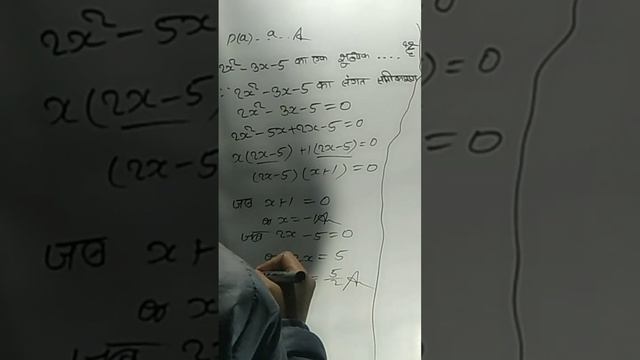 P(a) - a ... A
2x² - 3x - 5 का एक शून्यक ....
∵ 2x² - 3x - 5 का संगत समीकरण
2x² - 3x - 5 = 0
2x² - 5x + 2x - 5 = 0
x(2x-5) + 1(2x-5) = 0
(2x-5) (x+1) = 0
जब x+1 = 0
or x = -1 A
जब 2x - 5 = 0
or 2x = 5
= 5/2 A